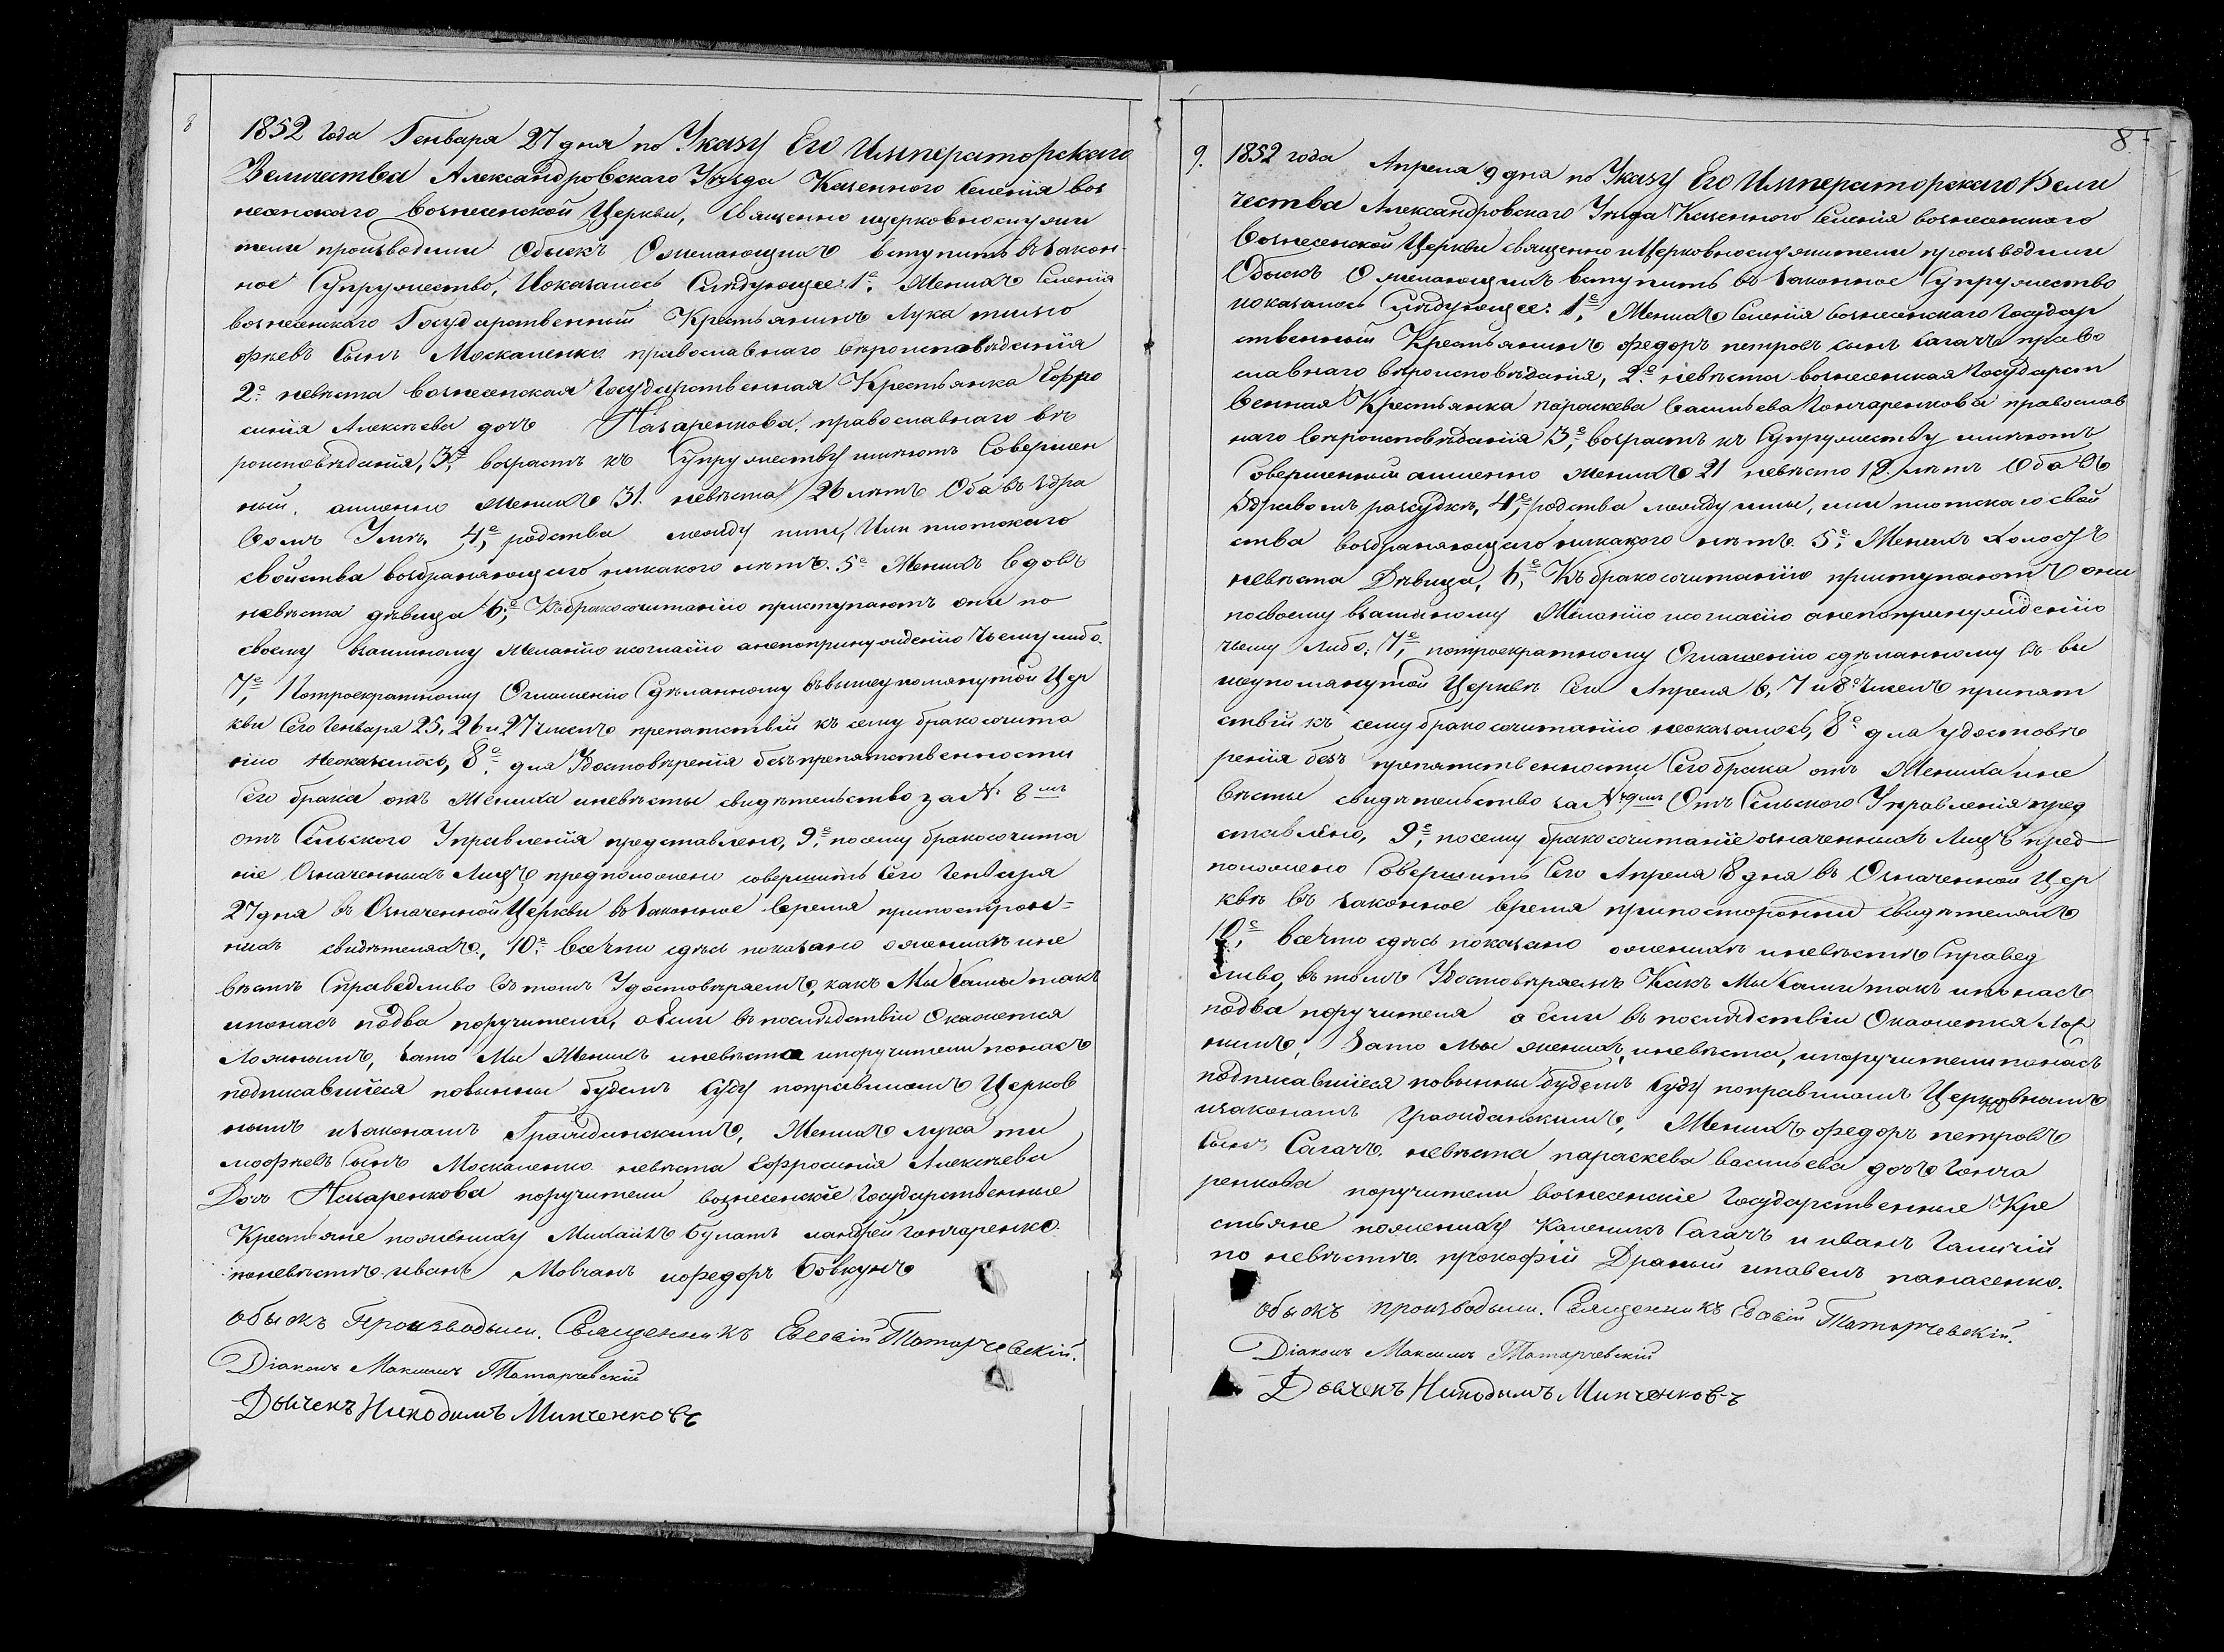 8
1852 года Генваря 27 дня по Указу Его Императорскаго
Величества Александровскаго Уѣзда Казенного Селенія воз
несенскаго Вознесенской Церкви, Священно ицерковнослужи
тели производили Обыскъ Ожелающихъ вступить въ закон-
ное Супружество, Иоказалось Слѣдующее: 1е, Женихъ Селенія
вознесенскаго Государственный Крестьянинъ Лука тимо
фѣевъ Сынъ Москаленко православнаго вѣроисповѣданія
2е невѣста вознесенская государственная Крестьянка Ефро
синія Алексѣева дочь Назаренкова, православнаго вѣ
роисповѣданія, 3е, возрастъ къ Супружеству имѣютъ Совершен
ный, аименно Женихъ 31. невѣста 26 лѣтъ Оба въ здра
вомъ Умѣ, 4е, родства между ими, Или плотскаго
свойства возбраняющаго никакого нѣтъ. 5е Женихъ вдовъ
невѣста дѣвица 6е, Къ бракосочитанію приступаютъ они по
своему взаимному желанію исогласію анепопринужденію Чьему либо.
7е, Потроекратному Оглашенію Сдѣланному въвышеупомянутой Цер
кви Сего Генваря 25, 26 и 27 чиселъ препятствій къ сему бракосочита
нію Неоказалось, 8е, для Удостовѣренія безъпрепятственности
Сего брака отъ жениха иневѣсты свидѣтельство за № 8мъ
отъ Сельского Управленія представлено, 9е, посему бракосочита
ніе Означенныхъ Лицъ предположено совершить сего Генваря
27 дня въ Означенной Церкви въ законное время припосторон-
нихъ свидѣтеляхъ, 10е. Все что сдѣсь показано оженихѣ ине
вѣстѣ Справедливо въ томъ Удостовѣряемъ, какъ Мы Сами такъ
ипонасъ подва поручители, аЕсли въ послѣдствіи Окажется
Ложнымъ, зато Мы Женихъ иневѣста ипоручители понасъ
подписавшіеся повинны будемъ суду поправиламъ Церков
нымъ изаконамъ Гражданскимъ, Женихъ лука ти
мофѣевъ сынъ Москаленко невѣста Ефросинія Алексѣева
Дочь Назаренкова поручители вознесенскіе государственные
Крестьяне пожениху Михаилъ Булатъ иандрей гончаренко.
поневѣстѣ иванъ Мовчанъ ифедоръ Бовкунъ
обыскъ производили. Священникъ Евсевій Татарчевскій.
Діаконъ Максимъ Татарчевскій
Дьячекъ Никодимъ Минченковъ
8
9. 1852 года Апреля 9 дня по Указу Его Императорскаго Вели
чества Александровскаго Уѣзда Казенного Селенія вознесенскаго
Вознесенской Церкви священно ицерковнослужители производили
Обыскъ Ожелающихъ вступить въ законное Супружество
показалось Слѣдующее: 1е, Женихъ Селенія вознесенскаго государ
ственный Крестьянинъ федоръ петровъ сынъ сагачъ право
славнаго вѣроисповѣданія, 2е. невѣста вознесенская государст
венная Крестьянка параскева васильева гончаренкова православ
наго вѣроисповѣданія 3е, возрастъ къ Супружеству имѣютъ
Совершенный аименно женихъ 21 невѣста 19 лѣтъ Оба въ
Здравомъ разсудкѣ, 4е, родства между ими, или плотскаго свой
ства возбраняющаго никакого нѣтъ. 5е, Женихъ холостъ
невѣста Дѣвица, 6е, Къ бракосочитанію приступаютъ они
посвоему взаимному желанію исогласію анепопринужденію
чьему либо. 7е, потроекратному Оглашенію сдѣланному въ вы
шеупомянутой Церквѣ Сего Апреля 6, 7 и 8 чиселъ препят
ствій къ сему бракосочитанію неоказалось, 8е для удостовѣ
ренія безъ препятственности Сего брака отъ Жениха ине
вѣсты свидѣтельство за № 9мъ Отъ Сельского Управленія пред
ставлено, 9е, посему бракосочитаніе означенныхъ Лицъ пред
положено Совершить Сего Апреля 8 дня въ Означенной Цер
квѣ въ законное время припосторонни свидѣтеляхъ
10е, все что сдѣсь показано оженихѣ иневѣстѣ Справед
ливо, въ томъ Удостовѣряемъ Какъ Мы сами такъ ипонасъ
подва поручителя аесли въ послѣдствіи Окажется лож
нымъ, зато мы женихъ, иневѣста, ипоручители понасъ
подписавшіеся повинны будемъ суду поправиламъ Церковнымъ
изаконамъ гражданскимъ, Женихъ федоръ петровъ
сынъ Сагачъ. невѣста параскева васильева дочь гонча
ренкова поручители вознесенскіе государственные Кре
стьяне пожениху Каленикъ Сагачъ и иванъ
по невѣстѣ. прокофій Драный ипавелъ панасенко.
обыскъ производили. Священникъ Евсевій Татарчевскій.
Діаконъ Максимъ Татарчевскій
Дьячекъ Никодимъ Минченковъ